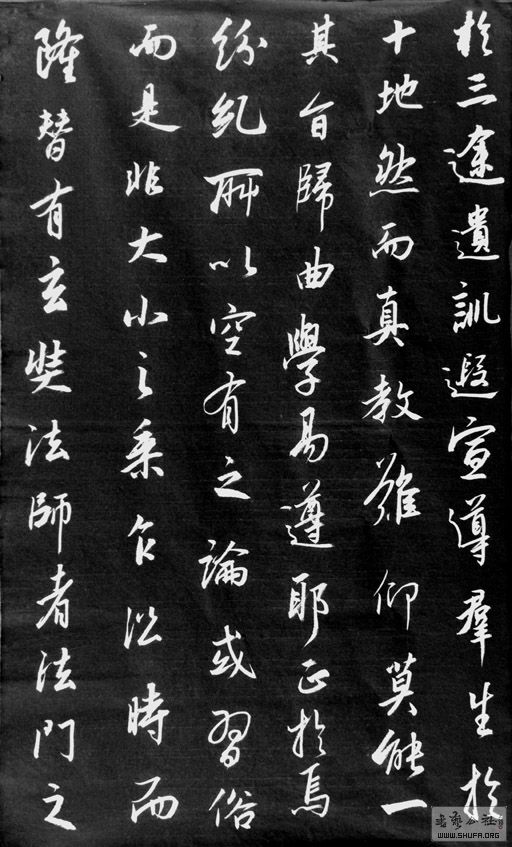 於三途遺訓遐宣導羣生於
十地然而真教難仰莫能一
其旨歸曲學易遵耶正於焉
紛糺所以空有之論或習俗
而是非大小之乘乍㳂時而
隆替有玄奘法師者法門之
WWW.SHUFA.ORG